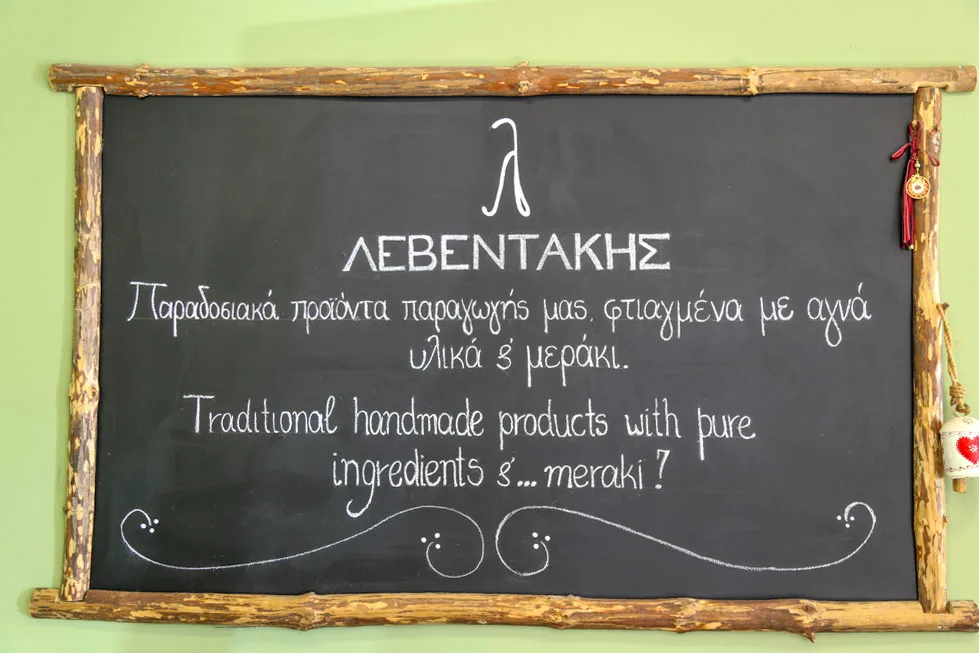 λ
ΛΕΒΕΝΤΑΚΗΣ
Παραδοσιακά προϊόντα παραγωγής μας, φτιαγμένα με αγνά
υλικά & μεράκι.
Traditional handmade products with pure
ingredients &... meraki!